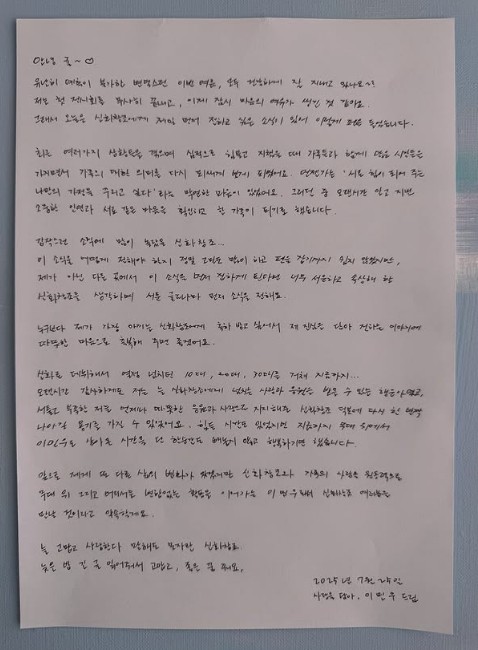 ~♡
유난히 변덕스런 이번 여름, 모두 건강하게 잘 지내고 있나요~?
저는 첫 전시회를 무사히 끝내고, 이제 잠시 마음의 여유가 생긴 것 같아요.
그래서 오늘은 신화창조에게 제일 먼저 전하고 싶은 소식이 있어 이렇게 펜을 들었습니다.
최근 여러가지 상황들을 겪으며 심적으로 힘들고 지쳤을 때 가족들과 함께 했던 시간들은
가지면서 가족의 대한 의미를 다시 되새기게 되었어요. 언젠가는 '서로 힘이 되어 주는
나만의 가정을 꾸리고 싶다'라는 막연한 마음이 있었어요. 그러던 중 오랜시간 알고 지낸
소중한 인연과 서로 같은 마음을 확인하고 한 가족이 되기로 했습니다.
갑작스런 소식에 많이 놀랐을 신화창조..
이 소식을 어떻게 전해야 하지 정말 고민도 많이 하고 펜을 잡기까지 쉽지 않았지만,
제가 아닌 다른 곳에서 이 소식을 먼저 접하게 된다면 너무 서운하고 속상해 할
신화창조를 생각하며 서툰 글로나마 먼저 소식을 전해요.
누구보다 제가 가장 아끼는 신화창조에게 축하 받고 싶어서 제 진심을 담아 전하는
따뜻한 마음으로 축복해 주면 좋겠어요.
신화로 데뷔해서 열정 넘치던 10대, 20대, 30대를 거쳐 지금까지...
오랜시간 감사하게도 저는 늘 신화창조에게 넘치는 사랑과 응원을 받을 수 있는 행운아였고,
서툴고 부족한 저를 언제나 따뜻한 응원과 사랑으로 지지해준 신화창조 덕분에 다시 한 번
나아갈 용기를 가질 수 있었어요. 힘든 시간도 있었지만 지금까지 무대 위에서
이민우로 살아온 시간을 단 한순간도 빼놓지 않고 행복하기만 했습니다.
앞으로 제게 또 다른 삶의 변화가 찾겠지만 신화창조와 가족의 사랑을 원동력으로
무대 위 그리고 어디서든 변함없는 활동을 이어가는 이민우 신화로 여러분을
만날 것이라고 약속할게요.
늘 고맙고 사랑한다 말해도 모자란 신화창조
늦은 밤 긴 글 읽어줘서 고맙고, 좋은 꿈 꿔요.
2025년 7월 25일
사랑을 담아. 이민우 드림